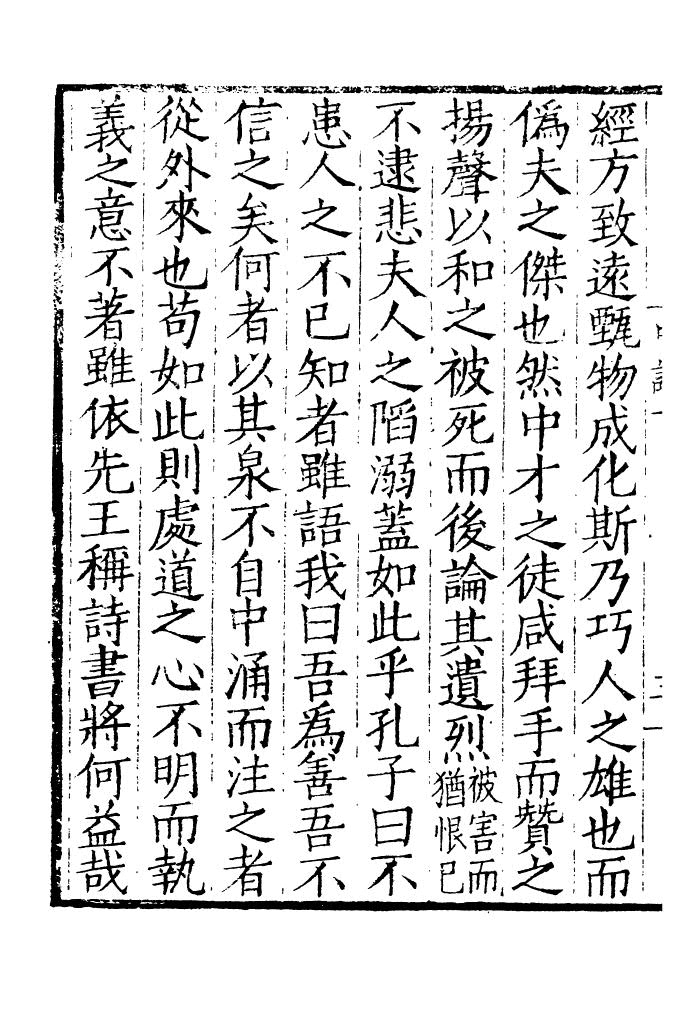 經方致遠甄物成化斯乃巧人之雄也而
偽夫之傑也然中才之徒咸拜手而贊之
揚聲以和之被死而後論其遺烈被害而猶恨己
不逮悲夫人之陷溺蓋如此乎孔子曰不
患人之不己知者雖語我曰吾為善吾不
信之矣何者以其泉不自中涌而注之者
從外來也苟如此則處道之心不明而執
義之意不著雖依先王稱詩書將何益哉